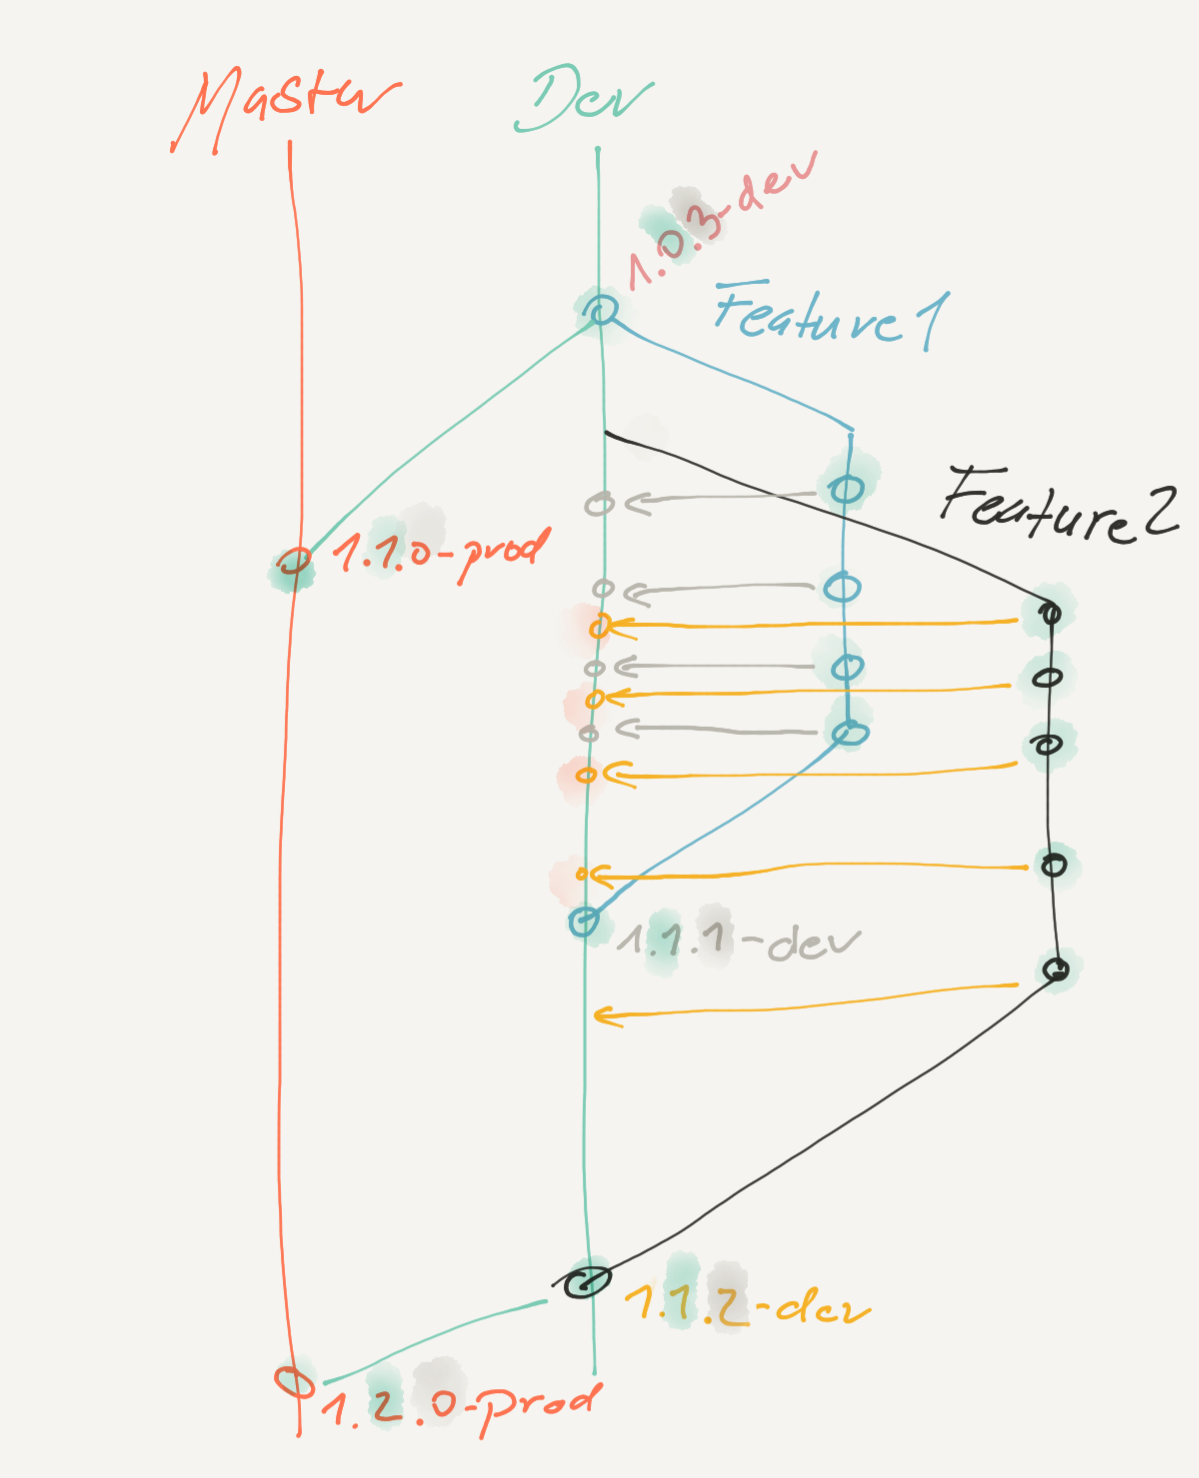 Master
Dev
1.0.3-dev
Feature 1
Feature 2
1.1.0-prod
1.1.1-dev
1.1.2-dev
1.2.0-prod